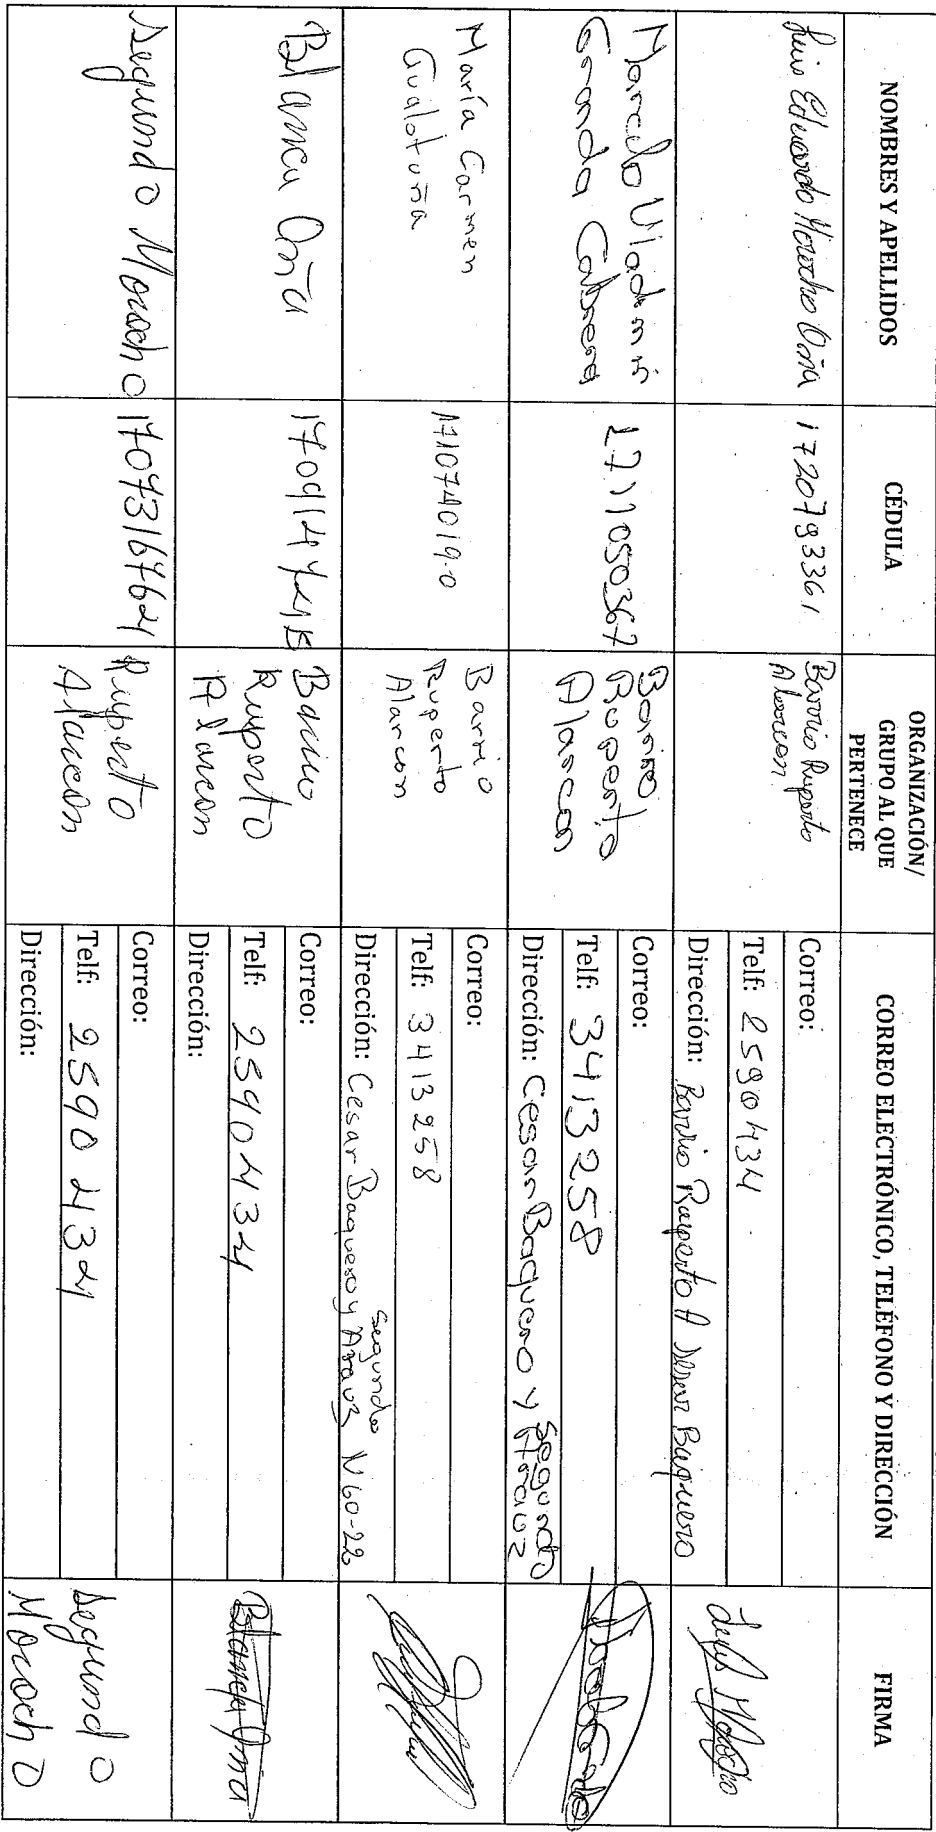 NOMBRES Y APELLIDOS
CÉDULA
ORGANIZACIÓN/
GRUPO AL QUE
PERTENECE
CORREO ELECTRÓNICO, TELÉFONO Y DIRECCIÓN
FIRMA
Luis Eduardo Morocho Oña
1720793361
Barrio Ruperto
Alarcon
Correo:
Telf: 2590434
Dirección: Barrio Ruperto A Baquero
Luis Morocho
Marcelo Vladimir
Granda Cabrera
1711050367
Barrio
Ruperto
Alarcon
Correo:
Telf: 3413258
Dirección: Cesar Baquero y Segundo
Arauz
María Carmen
Gualotuña
171074019-0
Barrio
Ruperto
Alarcon
Correo:
Telf: 3413258
Dirección: Cesar Baquero y Segundo Arauz N60-22
Blanca Oña
Barrio
Ruperto
Alarcon
Correo:
Telf: 2590434
Dirección:
Blanca Oña
Segundo Morocho
1707316764
Ruperto
Alarcon
Correo:
Telf: 2590434
Dirección:
Segundo
Morocho